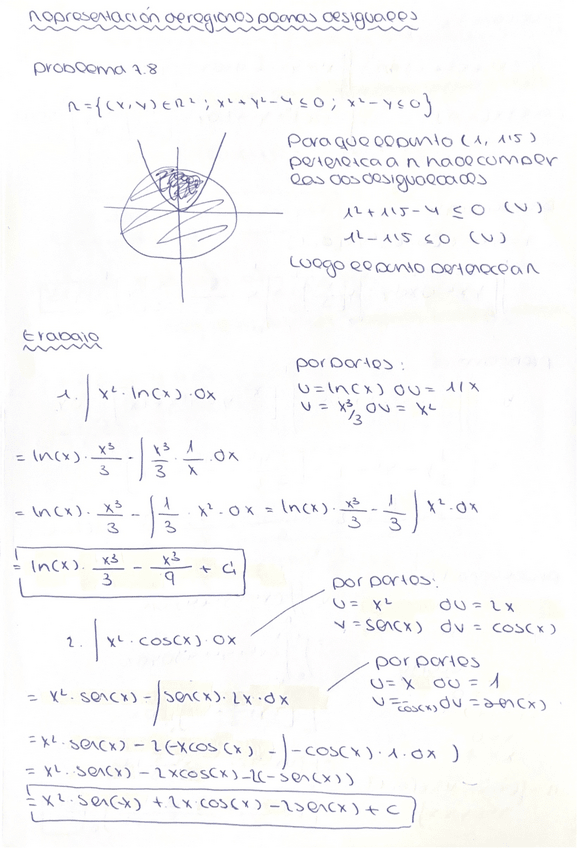 Representación de regiones planas desiguales
Problema 7.8
R = {(x,y) ∈ R² ; x² + y² - 4 ≤ 0 ; x² - y ≤ 0}
Para que el punto (1, 1'5)
pertenezca a R ha de cumplir
las dos desigualdades
1² + 1'5 - 4 ≤ 0 (V)
1² - 1'5 ≤ 0 (V)
Luego el punto pertenece a R
trabajo
por partes:
1. ∫ x² · ln(x) · dx
u = ln(x) du = 1/x
v = x³/3 dv = x²
= ln(x) · x³/3 - ∫ x³/3 · 1/x · dx
= ln(x) · x³/3 - ∫ 1/3 · x² · dx = ln(x) · x³/3 - 1/3 ∫ x² · dx
= ln(x) · x³/3 - x³/9 + C
por partes:
u = x² du = 2x
v = sen(x) dv = cos(x)
2. ∫ x² · cos(x) · dx
por partes
u = x du = 1
v = -cos(x) dv = sen(x)
= x² · sen(x) - ∫ sen(x) · 2x · dx
= x² · sen(x) - 2(-x cos(x) - ∫ -cos(x) · 1 · dx)
= x² · sen(x) - 2xcos(x) - 2(-sen(x))
= x² · sen(x) + 2x · cos(x) - 2sen(x) + C